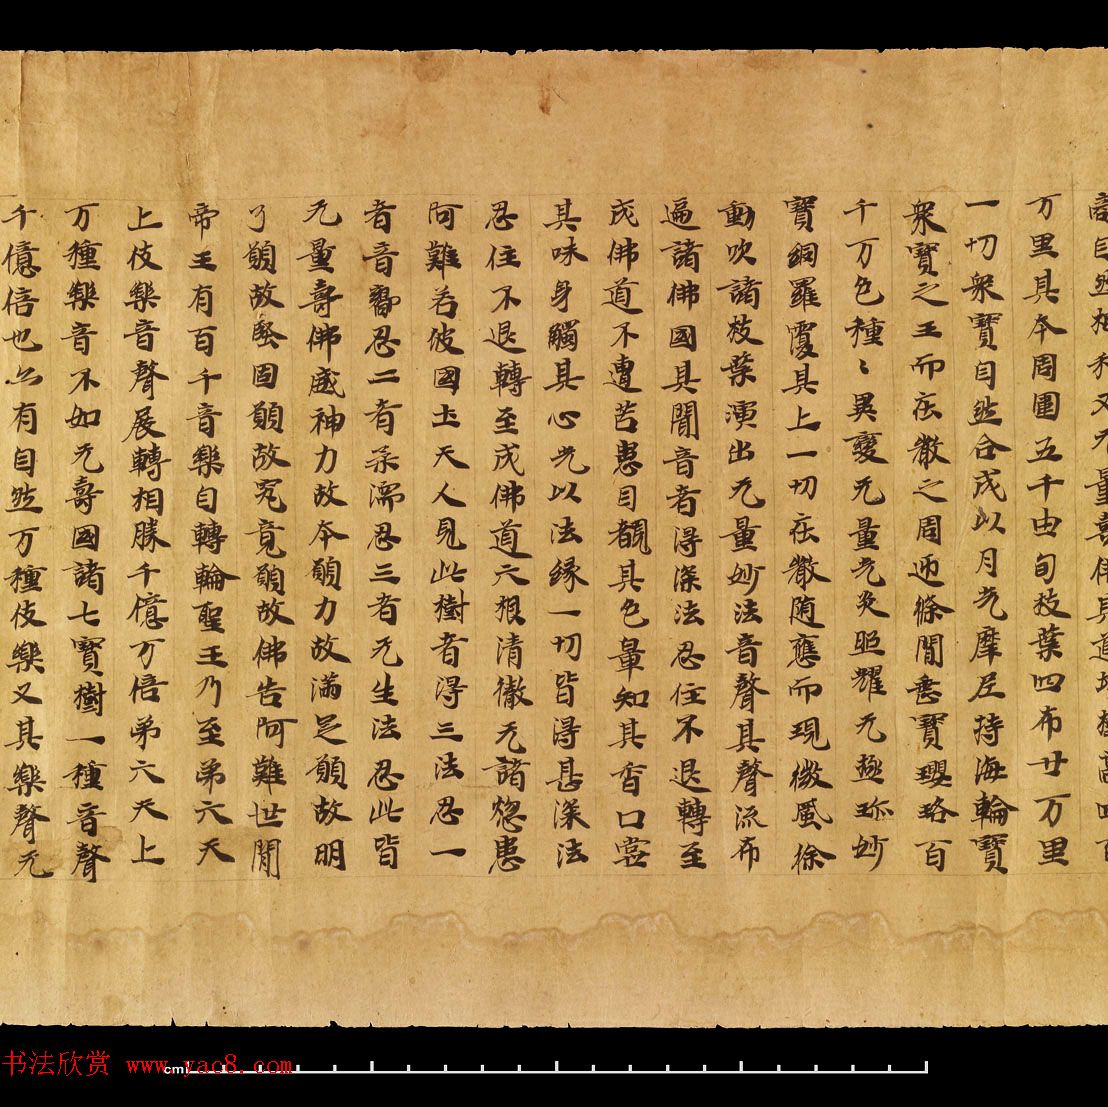 自然相和又无量壽佛其道場樹高四百
万里其本周圍五千由旬枝葉四布廿万里
一切衆寶自然合成以月光摩尼持海輪寶
衆寶之王而莊嚴之周迊條間垂寶瓔珞百
千万色種〻異變无量光炎照耀无極珎妙
寶網羅覆其上一切莊嚴随應而現微風徐
動吹諸枝葉演出无量妙法音聲其聲流布
遍諸佛國其聞音者得深法忍住不退轉至
成佛道不遭苦患目覩其色暈知其香口甞
其味身觸其心光以法緣一切皆得甚深法
忍住不退轉至成佛道六根清徹无諸惱患
阿難若彼國土天人見此樹者得三法忍一
者音響忍二者柔濡忍三者无生法忍此皆
无量壽佛威神力故本願力故滿足願故明
了願故堅固願故究竟願故佛告阿難世間
帝王有百千音樂自轉輪聖王乃至弟六天
上伎樂音聲展轉相勝千億万倍弟六天上
万種樂音不如无壽國諸七寶樹一種音聲
千億倍也亦有自然万種伎樂又其樂聲无
书法欣赏 www.yac8.com
cm